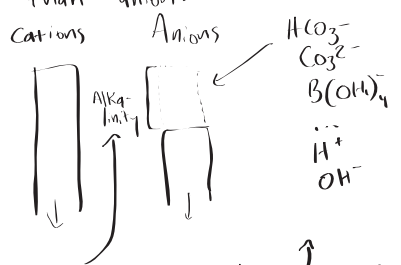 Cations
Anions
Alka-
linity
HCO3-
CO3 2-
B(OH)4-
...
H+
OH-